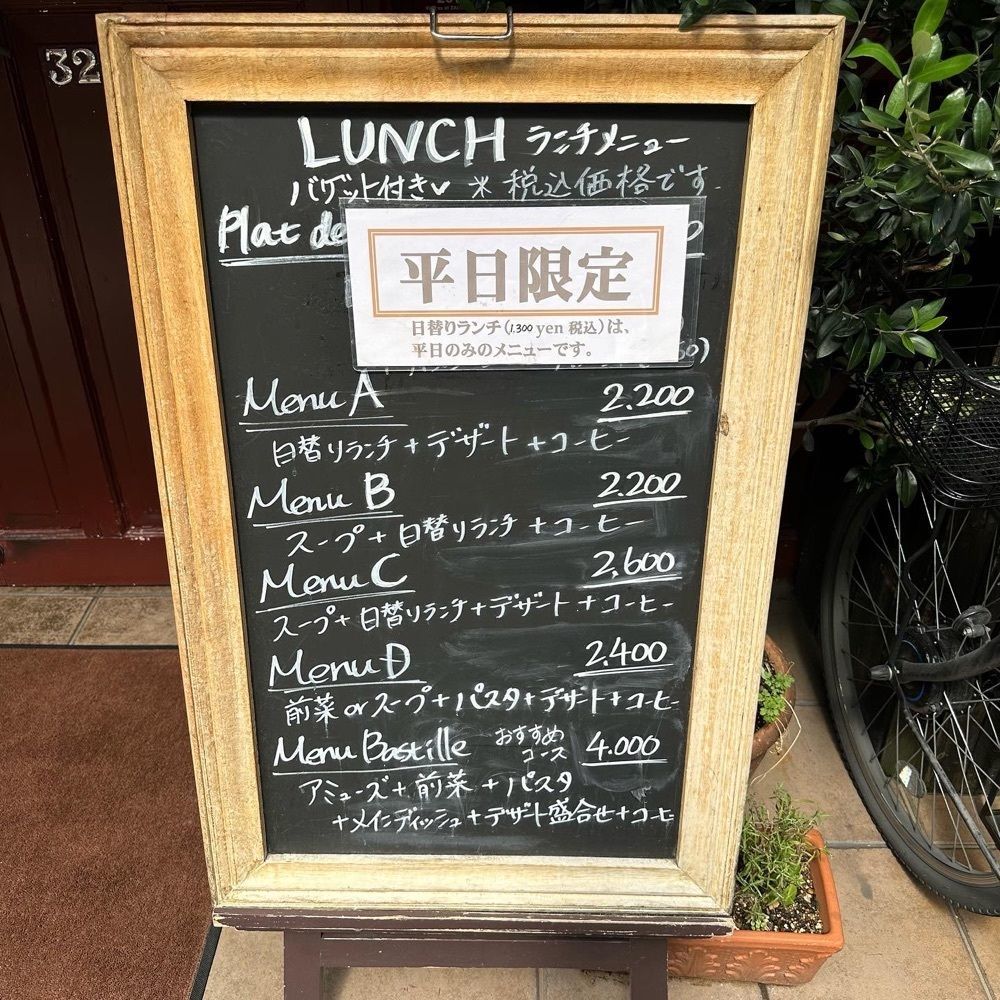 32
LUNCH ランチメニュー
バゲット付き♥ ※税込価格です.
Plat de
平日限定
日替りランチ(1.300yen 税込)は、
平日のみのメニューです。
Menu A 2.200
日替りランチ+デザート+コーヒー
Menu B 2.200
スープ+日替りランチ+コーヒー
Menu C 2,600
スープ+日替りランチ+デザート+コーヒー
Menu D 2.400
前菜orスープ+パスタ+デザート+コーヒー
Menu Bastille おすすめコース 4.000
アミューズ+前菜+パスタ
+メインディッシュ+デザート盛合せ+コーヒ